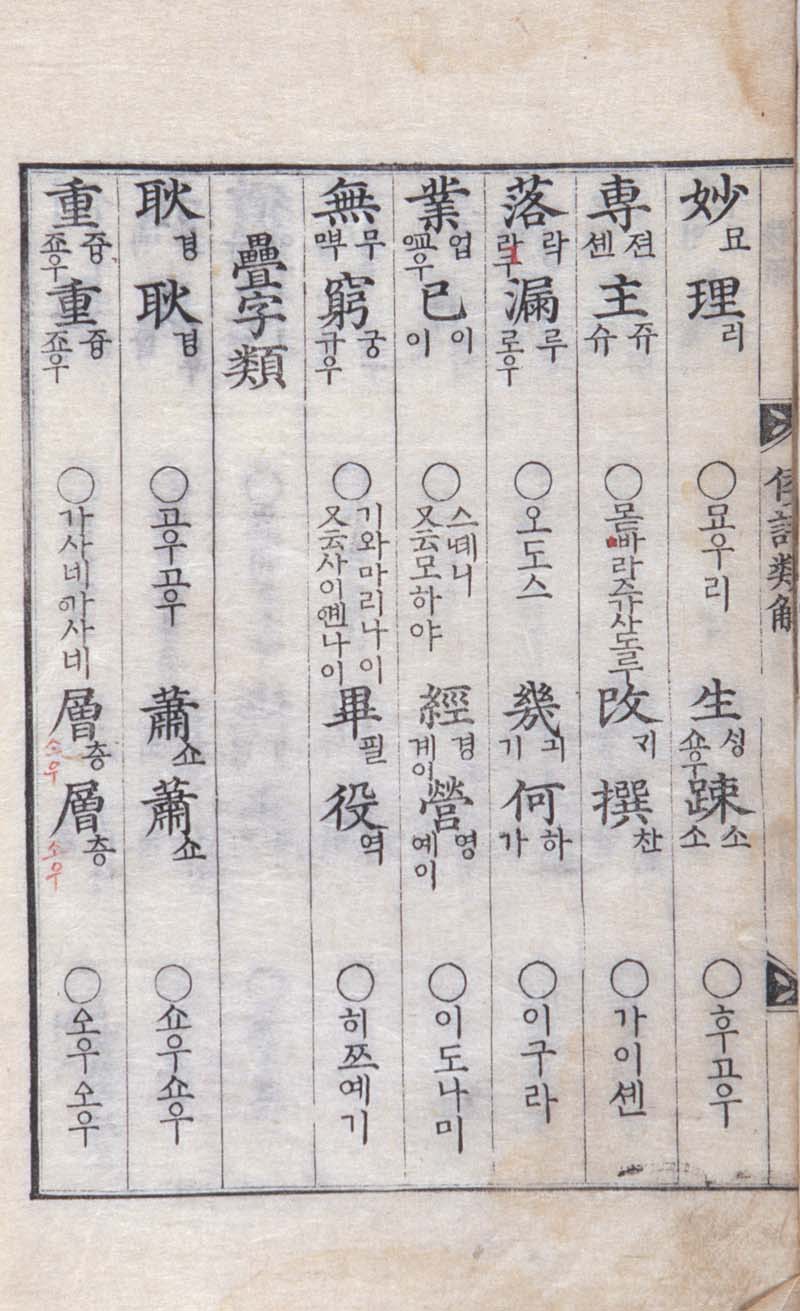 倭語類解
妙묘 理리 ○묘우리 生셩쇼우 踈소소 ○후고우
專젼센 主쥬슈 ○몯바라즈갸산도루 改ᄀᆡ 撰찬 ○가이센
落락라구 漏루로우 ○오도스 幾긔기 何하가 ○이구라
業업 已이이 ○스데니 又云모하야 經경게이 營영예이 ○이도나미
無무 窮궁규우 ○기와마리나이 又云사이옌나이 畢필 役역 ○히쯔예기
疊字類
耿경 耿경 ○고우고우 蕭쇼 蕭쇼 ○쇼우쇼우
重즁죠우 重즁죠우 ○가사네가사네 層층소우 層층소우 ○소우소우